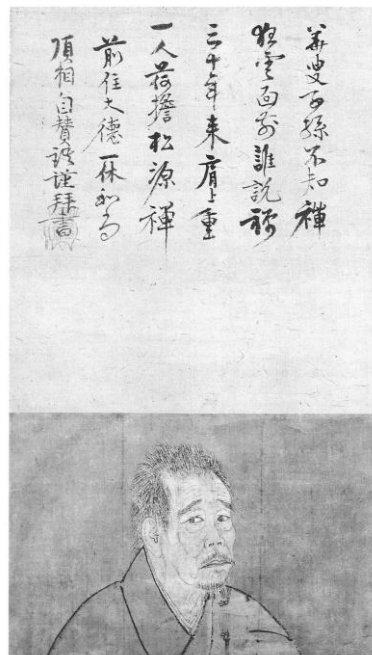 華叟子孫不知禪
狂雲面前誰說禪
三十年来肩上重
一人荷擔松源禪
前住大德一休和尚
頂相自賛語謹拜書